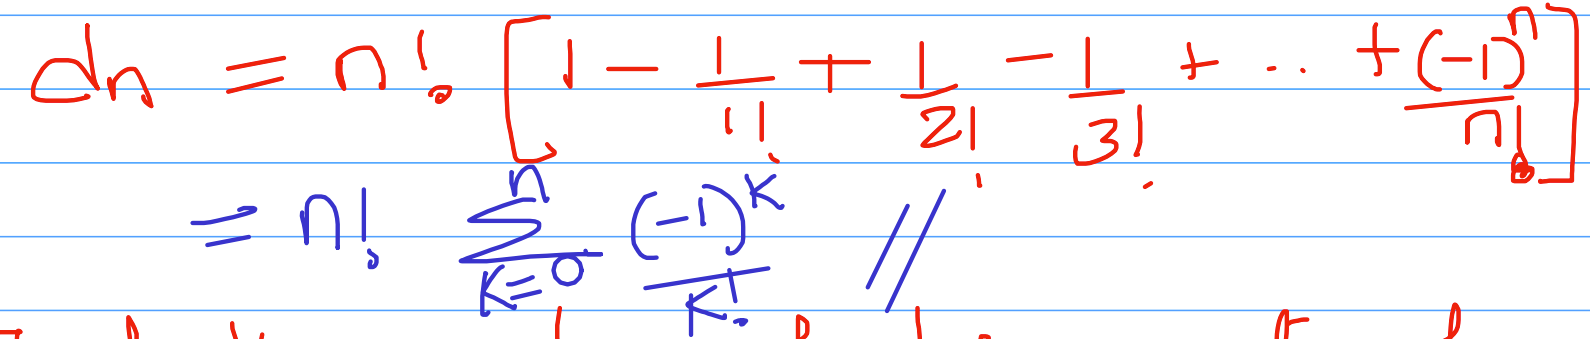 dn = n! [1 - 1/1! + 1/2! - 1/3! + ... + (-1)^n/n!]
= n! Σ_{K=0}^{n} (-1)^K/K! //